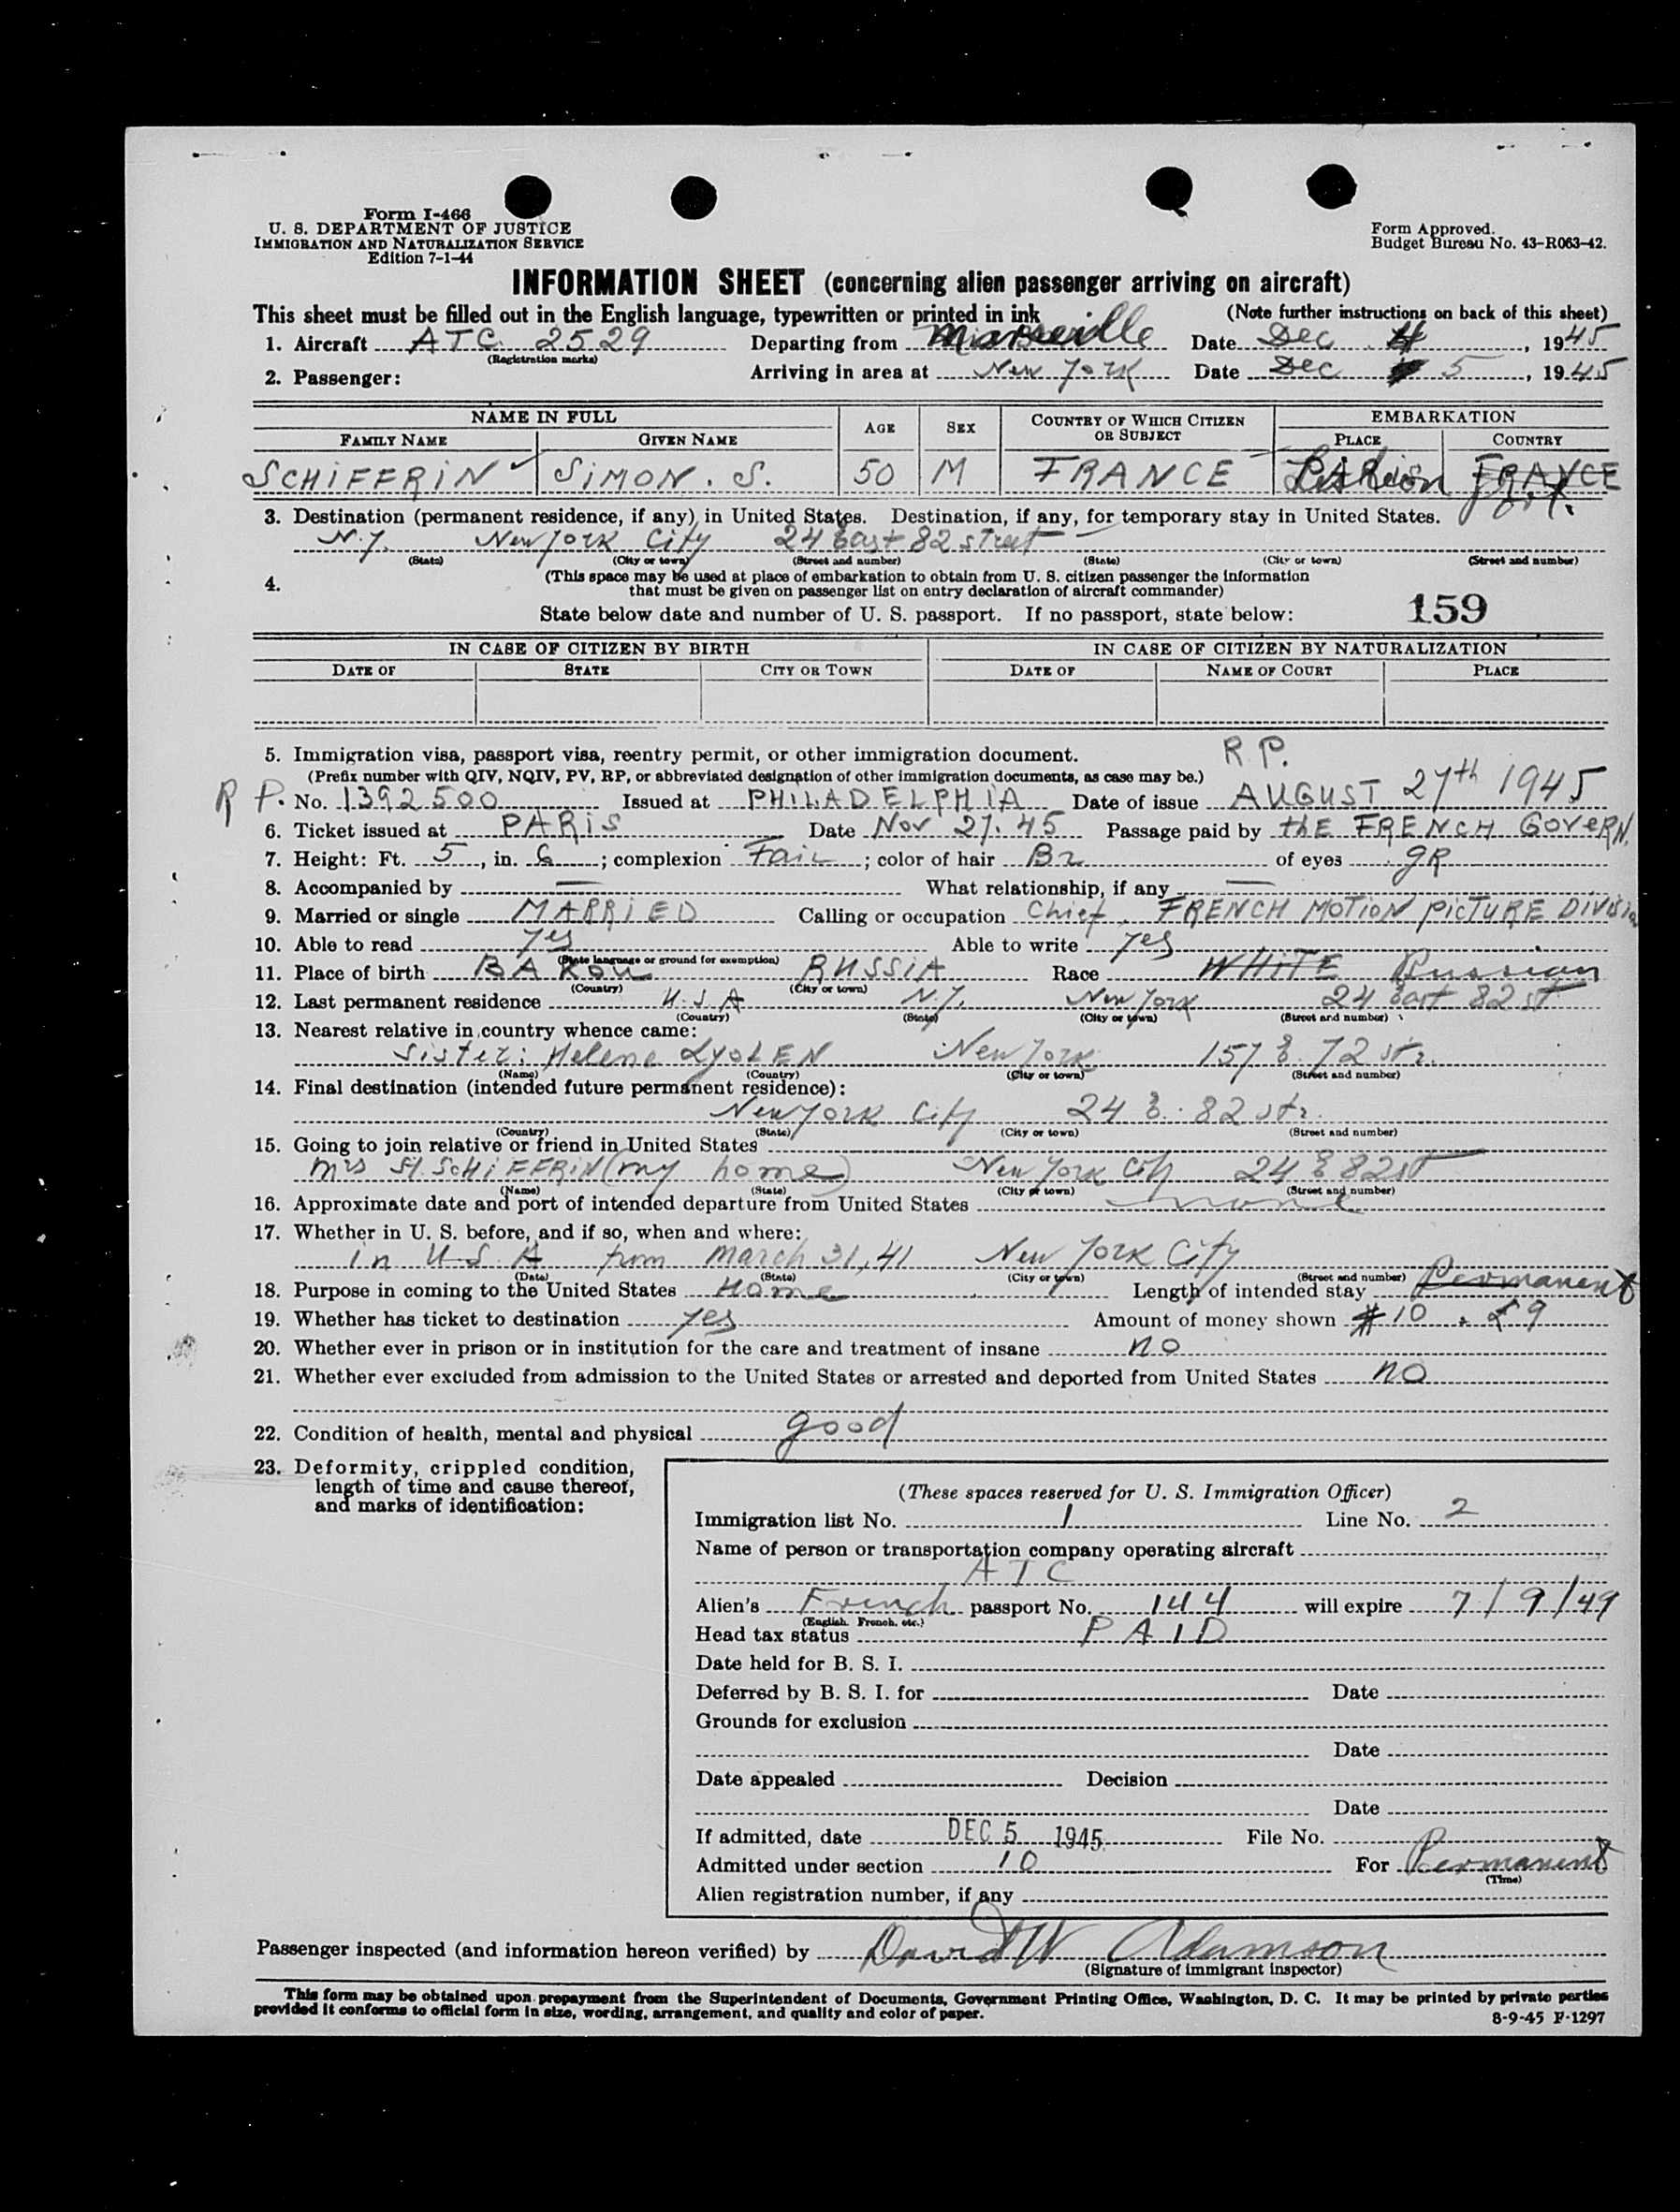 Form I-466
U. S. DEPARTMENT OF JUSTICE
IMMIGRATION AND NATURALIZATION SERVICE
Edition 7-1-44
Form Approved.
Budget Bureau No. 43-R063-42.
INFORMATION SHEET (concerning alien passenger arriving on aircraft)
This sheet must be filled out in the English language, typewritten or printed in ink (Note further instructions on back of this sheet)
1. Aircraft ATC 2529 Departing from Marseille Date Dec 4, 1945
(Registration marks)
2. Passenger: Arriving in area at New York Date Dec 5, 1945
NAME IN FULL AGE SEX COUNTRY OF WHICH CITIZEN OR SUBJECT EMBARKATION
FAMILY NAME GIVEN NAME PLACE COUNTRY
SCHIFFRIN SIMON. S. 50 M FRANCE Lisbon FRANCE Port.
3. Destination (permanent residence, if any) in United States. Destination, if any, for temporary stay in United States.
N.Y. New York City 24 East 82 street
(State) (City or town) (Street and number) (State) (City or town) (Street and number)
4. (This space may be used at place of embarkation to obtain from U. S. citizen passenger the information
that must be given on passenger list on entry declaration of aircraft commander)
State below date and number of U. S. passport. If no passport, state below: 159
IN CASE OF CITIZEN BY BIRTH IN CASE OF CITIZEN BY NATURALIZATION
DATE OF STATE CITY OR TOWN DATE OF NAME OF COURT PLACE
5. Immigration visa, passport visa, reentry permit, or other immigration document. R.P.
(Prefix number with QIV, NQIV, PV, RP, or abbreviated designation of other immigration documents, as case may be.)
R P. No. 1392500 Issued at PHILADELPHIA Date of issue AUGUST 27th 1945
6. Ticket issued at PARIS Date Nov 27. 45 Passage paid by thE FRENCH GOVERN.
7. Height: Ft. 5, in. 6; complexion Fair; color of hair Br of eyes gR
8. Accompanied by — What relationship, if any —
9. Married or single MARRIED Calling or occupation Chief, FRENCH MOTION PICTURE DIVISION
10. Able to read yes Able to write yes
(State language or ground for exemption)
11. Place of birth BAKOU RUSSIA Race WHITE Russian
(Country) (City or town)
12. Last permanent residence U.S.A N.Y. New York 24 East 82 st
(Country) (State) (City or town) (Street and number)
13. Nearest relative in country whence came:
Sister: Helene New York 157 E. 72 str.
(Name) (Country) (City or town) (Street and number)
14. Final destination (intended future permanent residence):
New York City 24 E. 82 str.
(Country) (State) (City or town) (Street and number)
15. Going to join relative or friend in United States
Mrs S. SCHIFFRIN (my home) New York City 24 E 82 st
(Name) (State) (City or town) (Street and number)
16. Approximate date and port of intended departure from United States none
17. Whether in U. S. before, and if so, when and where:
in U.S.A from March 31, 41 New York City
(Date) (State) (City or town) (Street and number)
18. Purpose in coming to the United States Home Length of intended stay Permanent
19. Whether has ticket to destination yes Amount of money shown $10. £9
20. Whether ever in prison or in institution for the care and treatment of insane no
21. Whether ever excluded from admission to the United States or arrested and deported from United States no
22. Condition of health, mental and physical good
23. Deformity, crippled condition,
length of time and cause thereof,
and marks of identification:
(These spaces reserved for U. S. Immigration Officer)
Immigration list No. 1 Line No. 2
Name of person or transportation company operating aircraft
ATC
Alien's French passport No. 144 will expire 7/9/49
(English, French, etc.)
Head tax status PAID
Date held for B. S. I.
Deferred by B. S. I. for Date
Grounds for exclusion
Date
Date appealed Decision
Date
If admitted, date DEC 5 1945 File No.
Admitted under section 10 For Permanent
(Time)
Alien registration number, if any
Passenger inspected (and information hereon verified) by David W Adamson
(Signature of immigrant inspector)
This form may be obtained upon prepayment from the Superintendent of Documents, Government Printing Office, Washington, D. C. It may be printed by private parties
provided it conforms to official form in size, wording, arrangement, and quality and color of paper.
8-9-45 F-1297